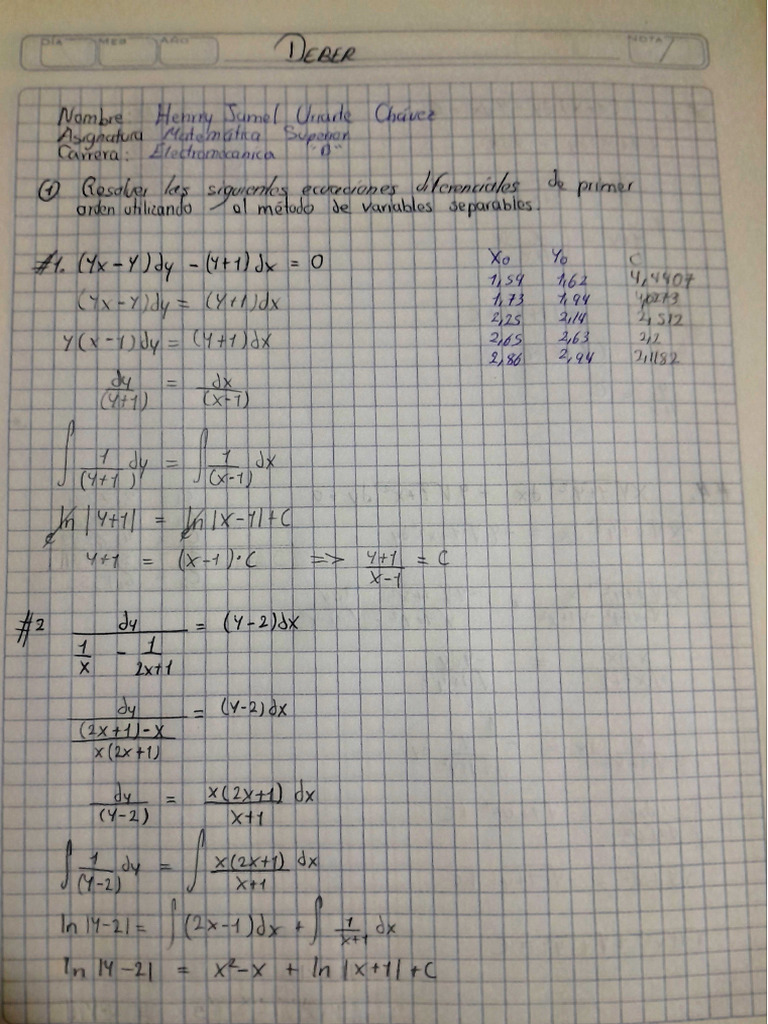 DÍA MES AÑO DEBER NOTA
Nombre: Henrry Jamel Uriarte Chávez
Asignatura Matemática Superior
Carrera: Electromecánica "B"
① Resolver las siguientes ecuaciones diferenciales de primer
orden utilizando el método de variables separables.
#1. (yx-y)dy -(y+1)dx = 0
(yx-y)dy = (y+1)dx
y(x-1)dy = (y+1)dx
dy/(y+1) = dx/(x-1)
∫ 1/(y+1) dy = ∫ 1/(x-1) dx
ln |y+1| = ln |x-1|+C
y+1 = (x-1)·C => y+1/x-1 = C
X₀ Y₀ C
1,54 1,62 4,4407
1,73 1,94
2,25 2,14 2,512
2,65 2,63 2,2
2,86 2,94 2,1182
#2 dy/(1/x - 1/2x+1) = (y-2)dx
dy/((2x+1)-x/x(2x+1)) = (y-2)dx
dy/(y-2) = x(2x+1)/x+1 dx
∫ 1/(y-2) dy = ∫ x(2x+1)/x+1 dx
ln |y-2| = ∫(2x-1)dx + ∫ 1/x+1 dx
ln |y-2| = x²-x + ln |x+1| + C